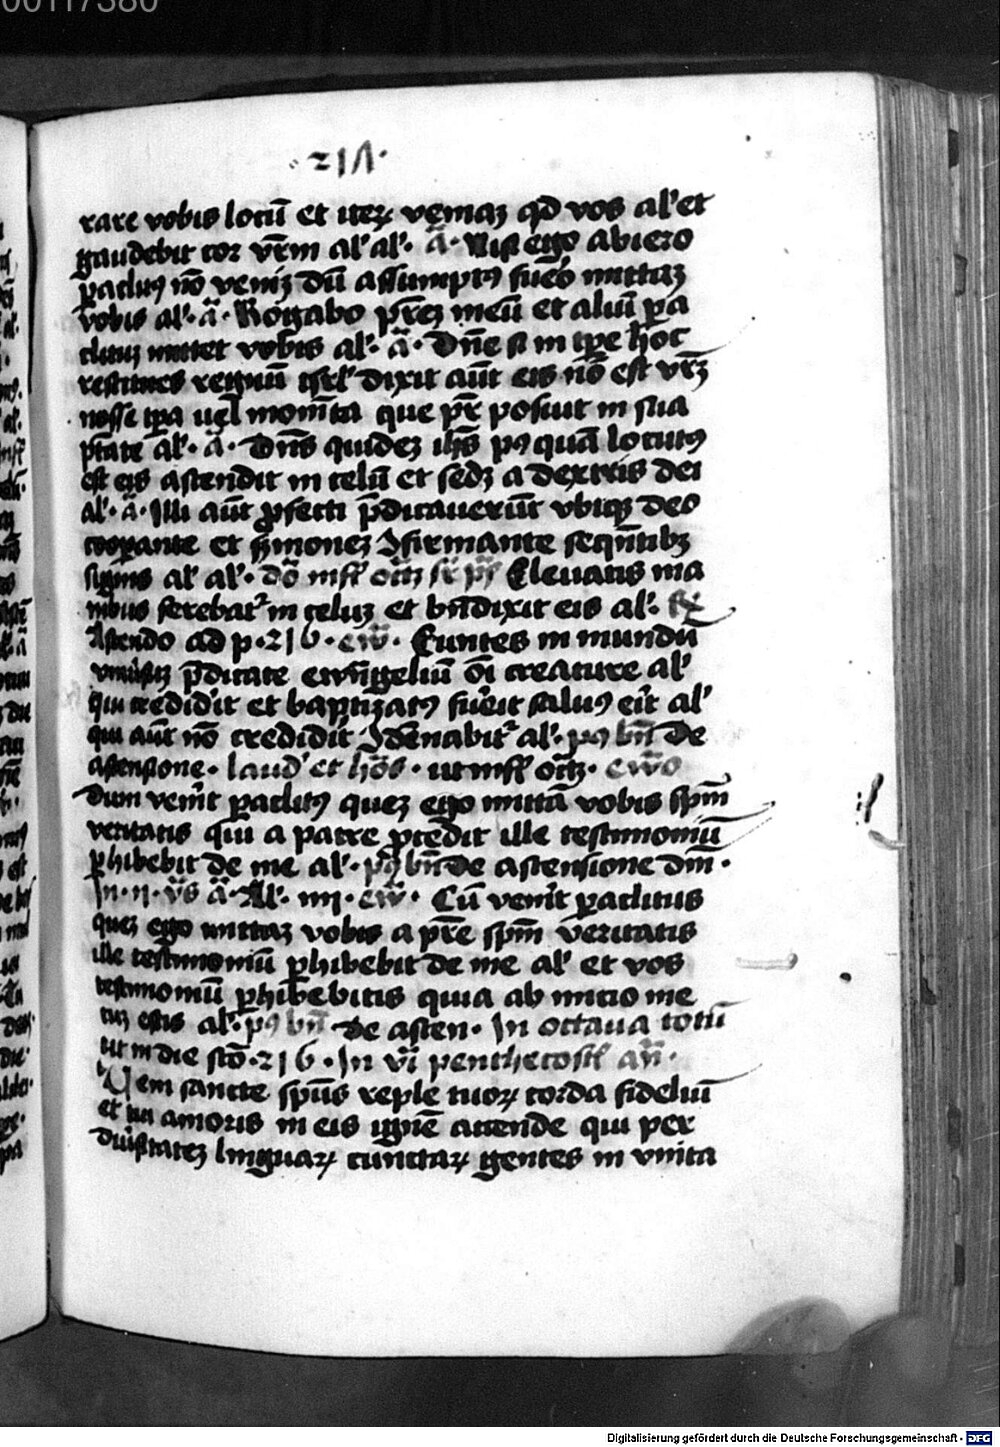 00117380
·217·
rare vobis locū et iteꝝ veniaꝫ qd vos al' et
gaudebit cor vr̄m al' al'· ā· Nisi ego abiero
ꝑaclitꝰ nō veniꝫ dū assumptꝰ fuēo mittaꝫ
vobis al'· ā· Rogabo pr̄eꝫ meū et aliū ꝑa
clituꝫ mittet vobis al'· ā· Dn̄e si in tꝑe hoc
restitues regnū isrl' dixit aūt eis nō est vrꝫ
nosse tꝑa uel mom̄ta que pr̄ posuit in sua
ptāte al'· ā· Dn̄s quideꝫ ihs̄ pꝰ quā locutꝰ
est eis ascendit in celū et sedꝫ a dextris dei
al'· ā· Illi aūt ꝓfecti p̄dicauerūt vbiqꝫ deo
cooꝑante et s̄moneꝫ ꝯfirmante sequētibꝫ
signis al' al'· Eleuatis ma
nibus ferebat᷑ in celuꝫ et bn̄dixit eis al'·
Ascendo ad p·216· ew̄· Euntes in mundū
vniūsuꝫ p̄dicate ewn̄gelium oī creature al'
qui credidit et baptizatꝰ fuēit saluꝰ eit al'
qui aūt nō crediderit ꝯdēnabit᷑ al'· pꝰ bn̄ de
ascensione· laud' et hōs· ut inff octꝫ· ew̄o
Dum venīt ꝑaclitꝰ queꝫ ego mittā vobis spm̄
veritatis qui a patre ꝓcedit ille testimoniū
ꝑhibebit de me al'· pꝰ bn̄ de ascensione dm̄·
In· ij· vs̄ ā· Al'· iiij· ew̄· Cū venīt ꝑaclitus
queꝫ ego mittaꝫ vobis a pr̄e spm̄ veritatis
ille testimoniū ꝑhibebit de me al' et vos
testimoniū ꝑhibebitis quia ab initio me
cuꝫ estis al'· pꝰ bn̄ de ascen· In octaua totū
ut in die scō·216· In vī penthecost' an̄·
Ueni sancte spūs reple tuoꝝ corda fideliū
et tui amoris in eis ignē accende qui per
diūsitateꝫ linguaꝝ cunctaꝝ gentes in vnita
Digitalisierung gefördert durch die Deutsche Forschungsgemeinschaft - DFG